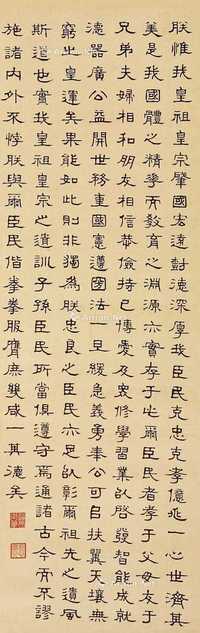 朕惟我皇祖皇宗肇國宏遠樹德深厚我臣民克忠克孝億兆一心世濟其
美是我國體之精華而教育之淵源亦實存乎此爾臣民孝于父母友于
兄弟夫婦相和朋友相信恭儉持己博愛及衆修學習業以啓發智能成就
德器廣公益開世務重國憲遵國法一旦緩急義勇奉公可以扶翼天壤無
窮之皇運矣果能如此則非獨為朕忠良之臣民亦足以彰爾祖先之遺風
斯道也實我皇祖皇宗之遺訓子孫臣民所當俱遵守焉通諸古今而不謬
施諸内外不悖朕與爾臣民偕拳拳服膺庶幾咸一其德矣